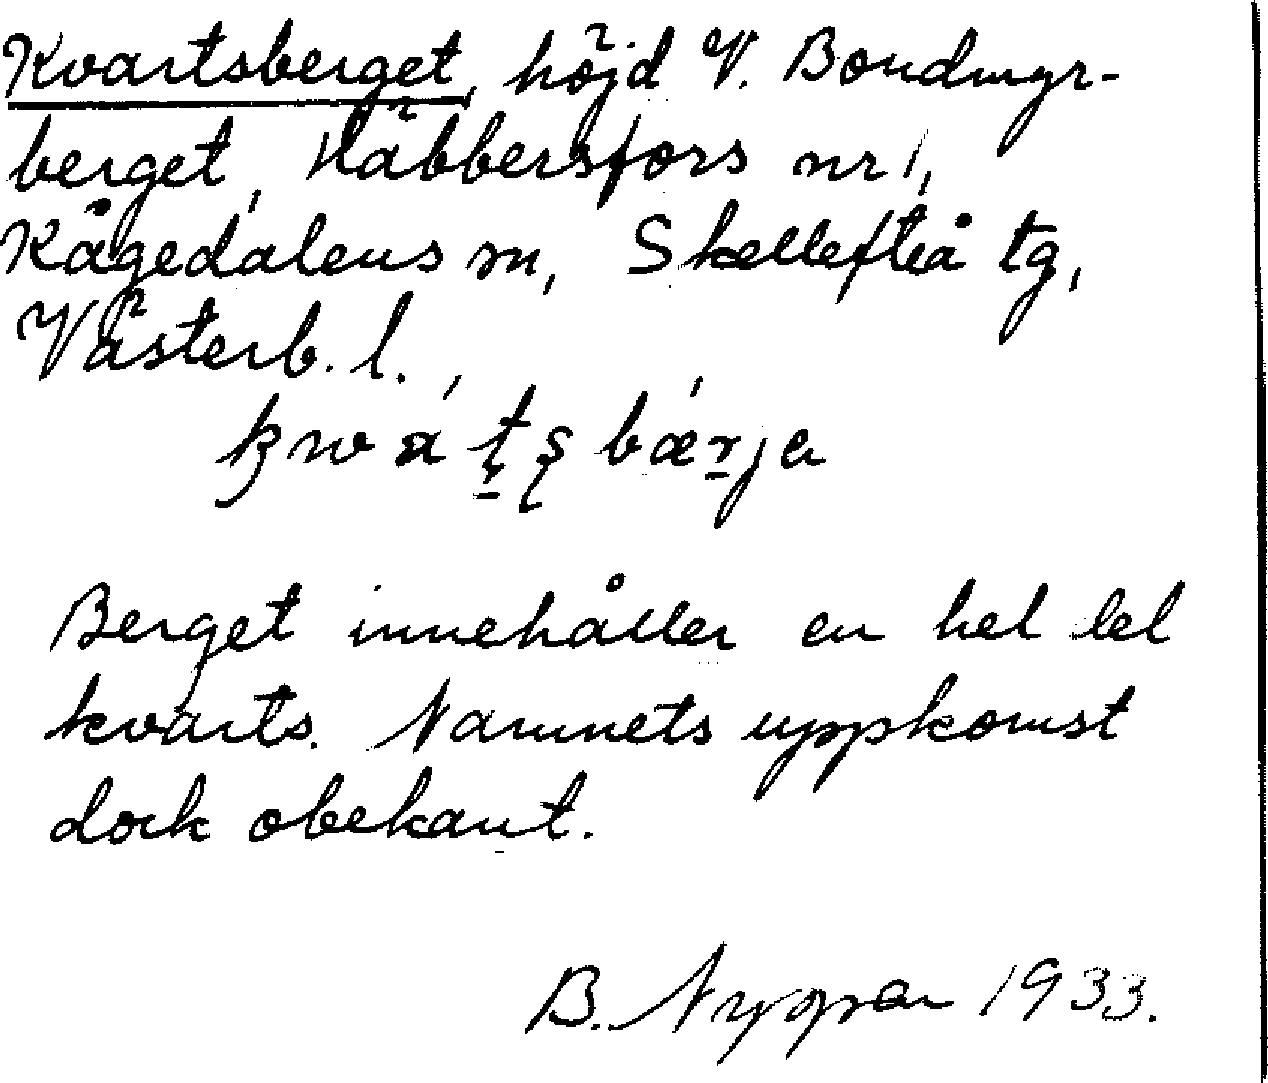 Kvartsberget, höjd V. Bondmyr-
berget, Häbbersfors nr 1,
Kågedalens sn, Skellefteå tg,
Västerb. l.
kwátsbǽrja
Berget innehåller en hel del
kvarts. Namnets uppkomst
dock obekant.
B. 1933.